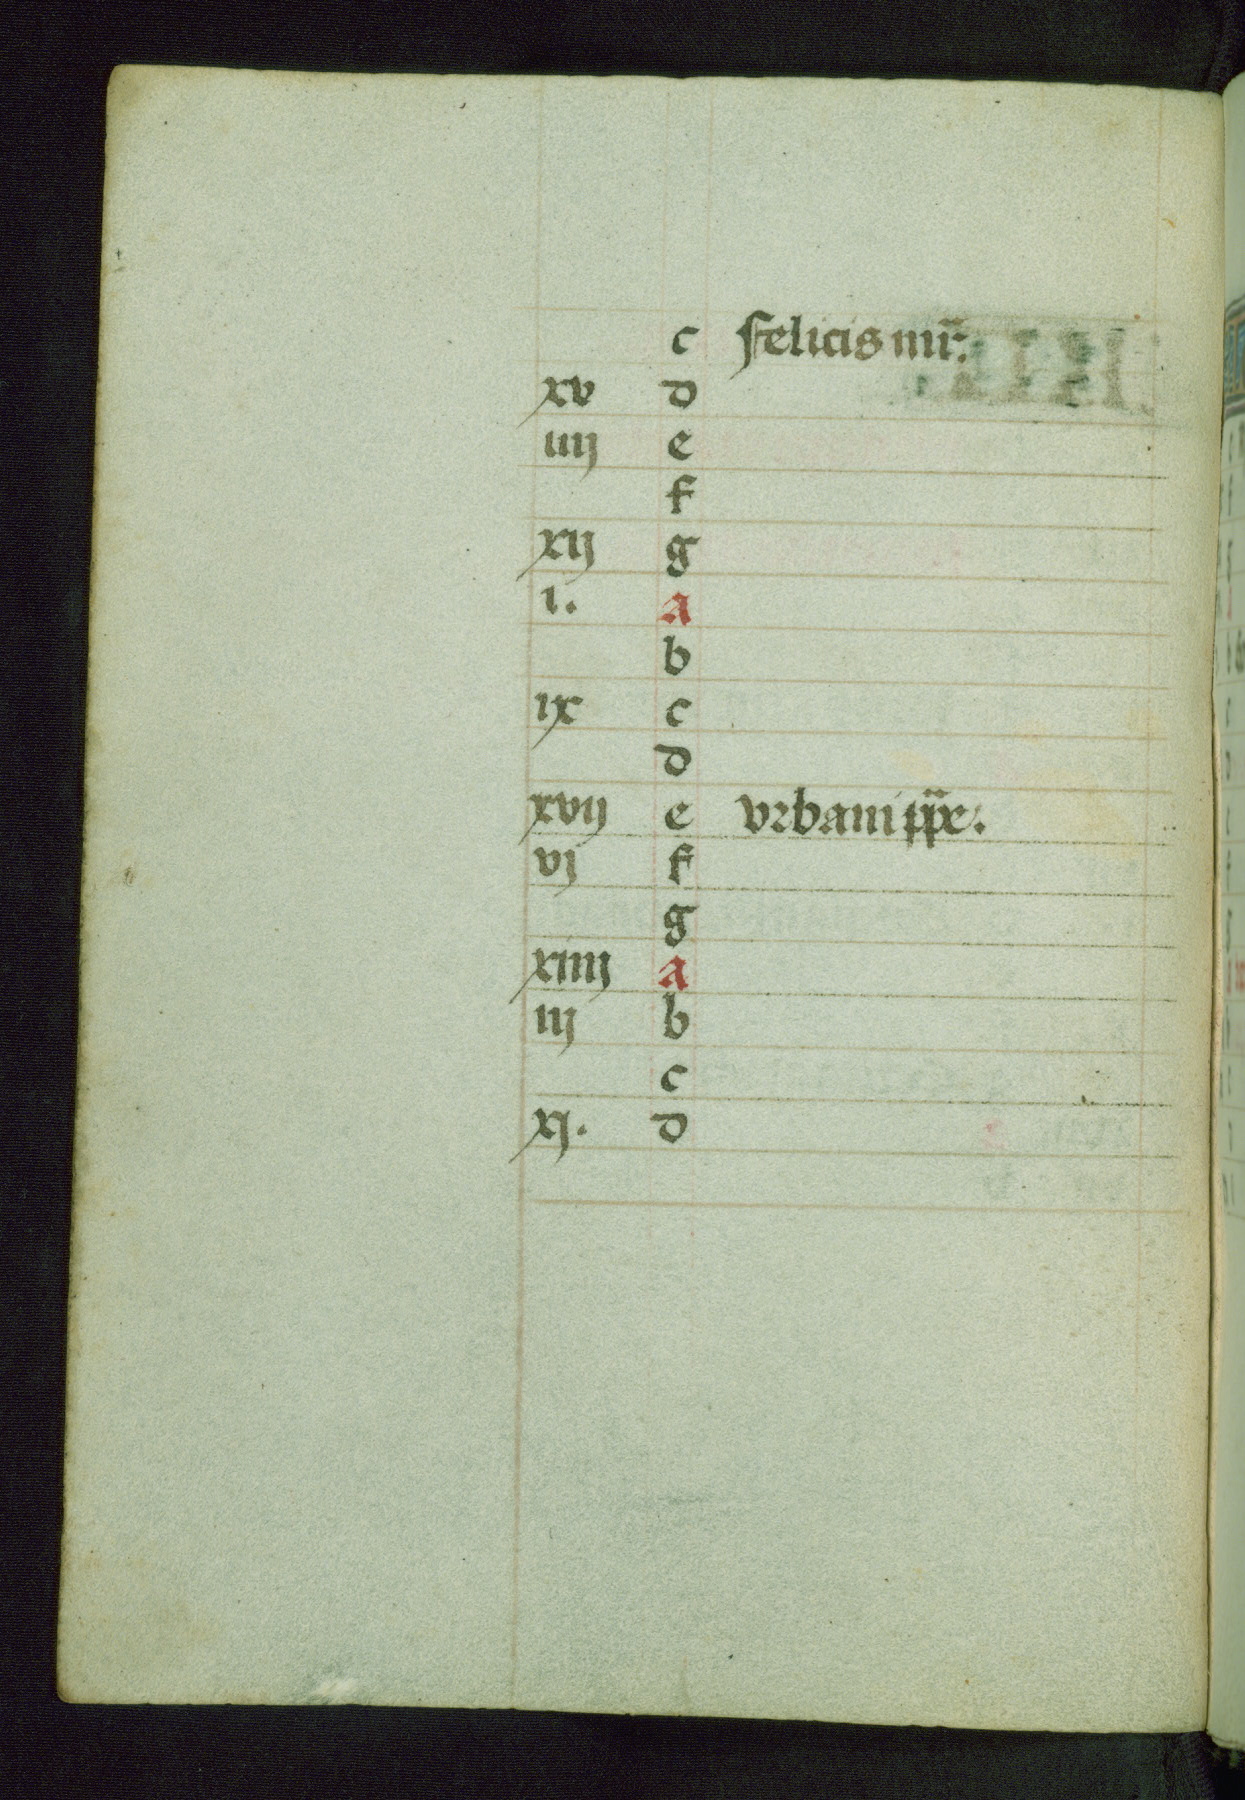 c felicis mr̃.
xv d
iiij e
f
xij g
i. a
b
ix c
d
xvij e vrbani pp̃e.
vj f
g
xiiij a
iij b
c
xj. d